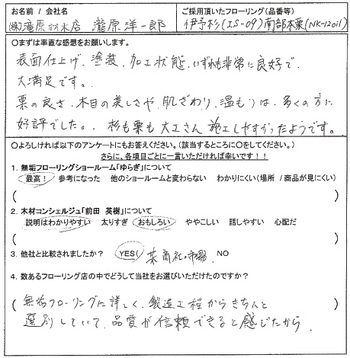 お名前 / 会社名
ご採用頂いたフローリング(品番等)
㈱瀧原材木店 瀧原洋一郎
伊予杉(IS-09)南部栗(NK-1201)
○まずは率直な感想をお願いします。
表面仕上げ、塗装、加工状態、いずれも非常に良好で、
大満足です。
栗の良さ、木目の美しさや、肌ざわり、温もりは、多くの方に
好評でした。 杉も栗も大工さん施工しやすかったようです。
○よろしければ以下のアンケートにもお答えください。(該当するところに○をしてください。)
さらに、各項目ごとに一言いただければ幸いです!!
1. 無垢フローリングショールーム「ゆらぎ」について
最高! 参考になった 他のショールームと変わらない わかりにくい(場所 / 商品が見にくい)
2. 木材コンシェルジュ「前田 英樹」について
説明はわかりやすい 太りすぎ おもしろい ややこしい 話しやすい 心配だ
3. 他社と比較されましたか? YES! NO
4. 数あるフローリング店の中でどうして当社をお選びいただけたのですか?
無垢フローリングに詳しく、製造工程からきちんと
選別していて、品質が信頼できると感じたから